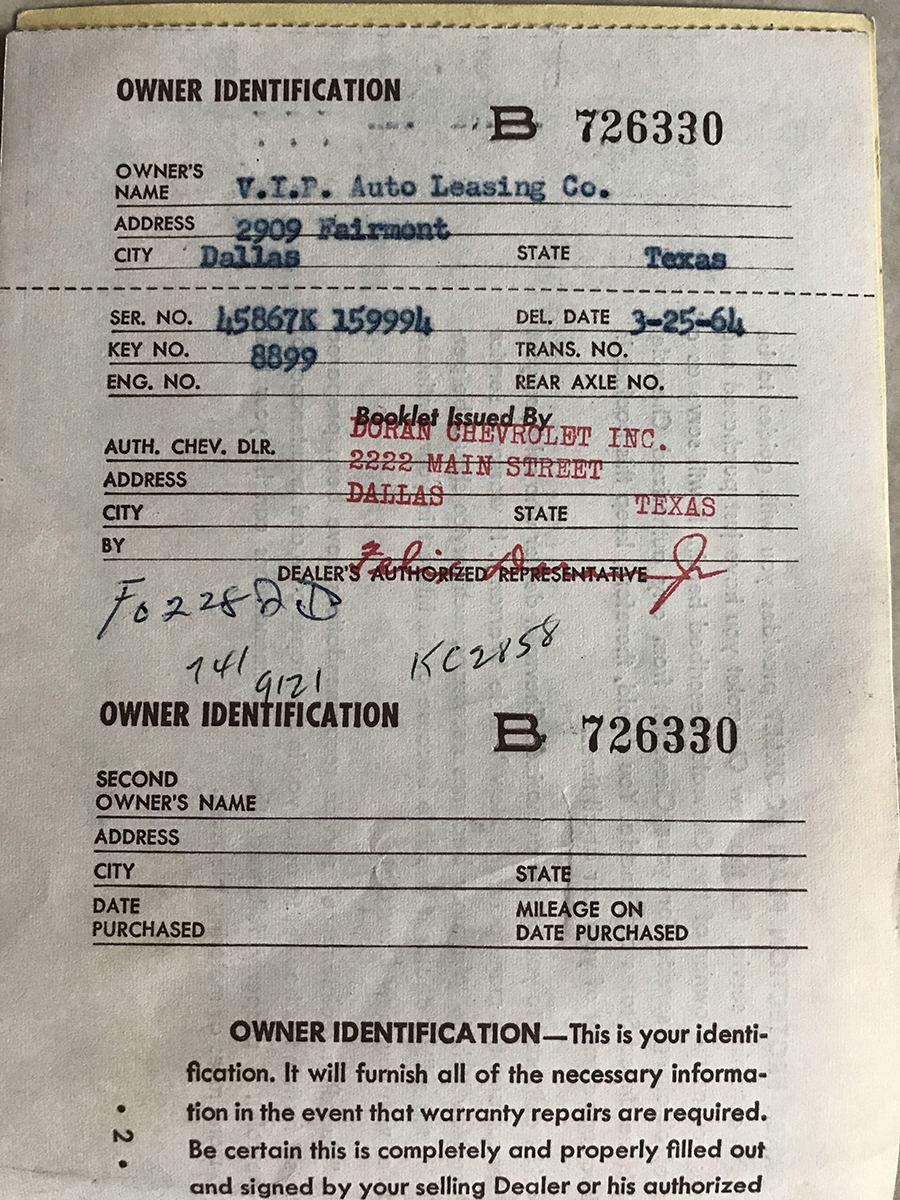 OWNER IDENTIFICATION
B 726330
OWNER'S
NAME V.I.P. Auto Leasing Co.
ADDRESS 2909 Fairmont
CITY Dallas STATE Texas
SER. NO. 45867K 159994 DEL. DATE 3-25-64
KEY NO. 8899 TRANS. NO.
ENG. NO. REAR AXLE NO.
Booklet Issued By
AUTH. CHEV. DLR. DORAN CHEVROLET INC.
ADDRESS 2222 MAIN STREET
CITY DALLAS STATE TEXAS
BY Felix Doran Jr
DEALER'S AUTHORIZED REPRESENTATIVE
741
9121
KC2858
OWNER IDENTIFICATION
B 726330
SECOND
OWNER'S NAME
ADDRESS
CITY STATE
DATE MILEAGE ON
PURCHASED DATE PURCHASED
OWNER IDENTIFICATION—This is your identi-
fication. It will furnish all of the necessary informa-
tion in the event that warranty repairs are required.
Be certain this is completely and properly filled out
and signed by your selling Dealer or his authorized
• 2 •